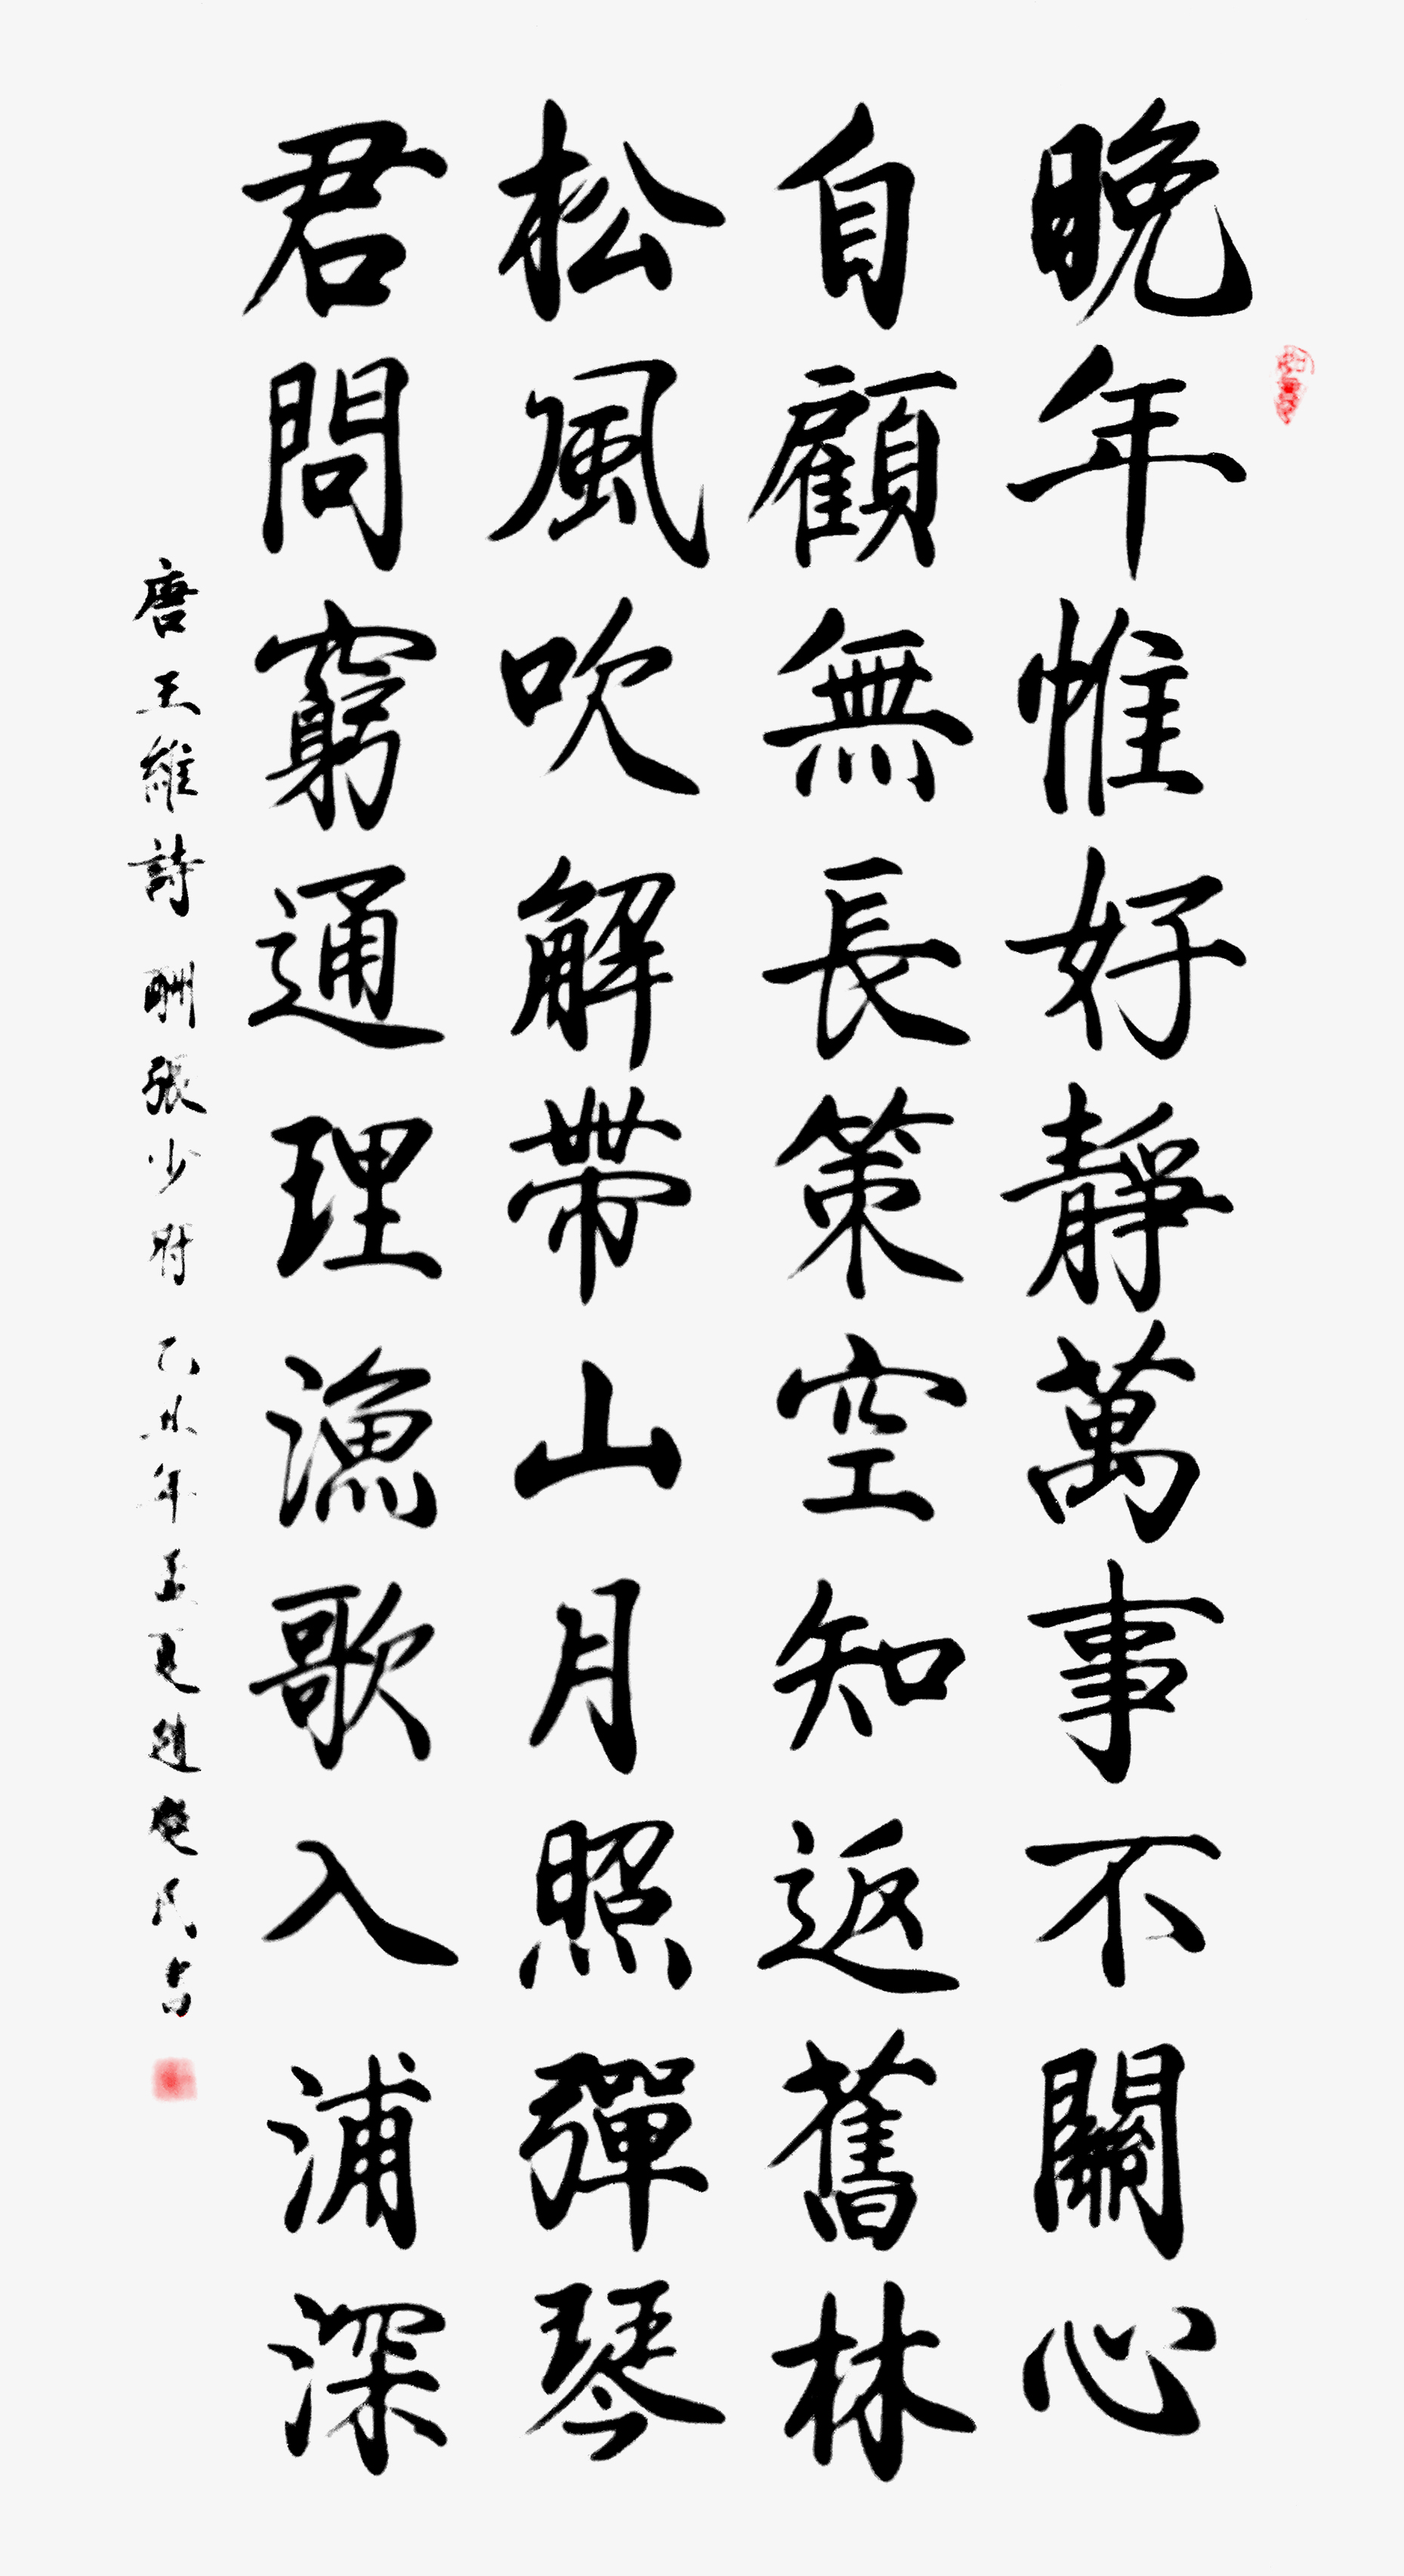 晚年惟好靜萬事不關心
自顧無長策空知返舊林
松風吹解帶山月照彈琴
君問窮通理漁歌入浦深
唐王維詩 酬張少府 乙未年孟夏趙